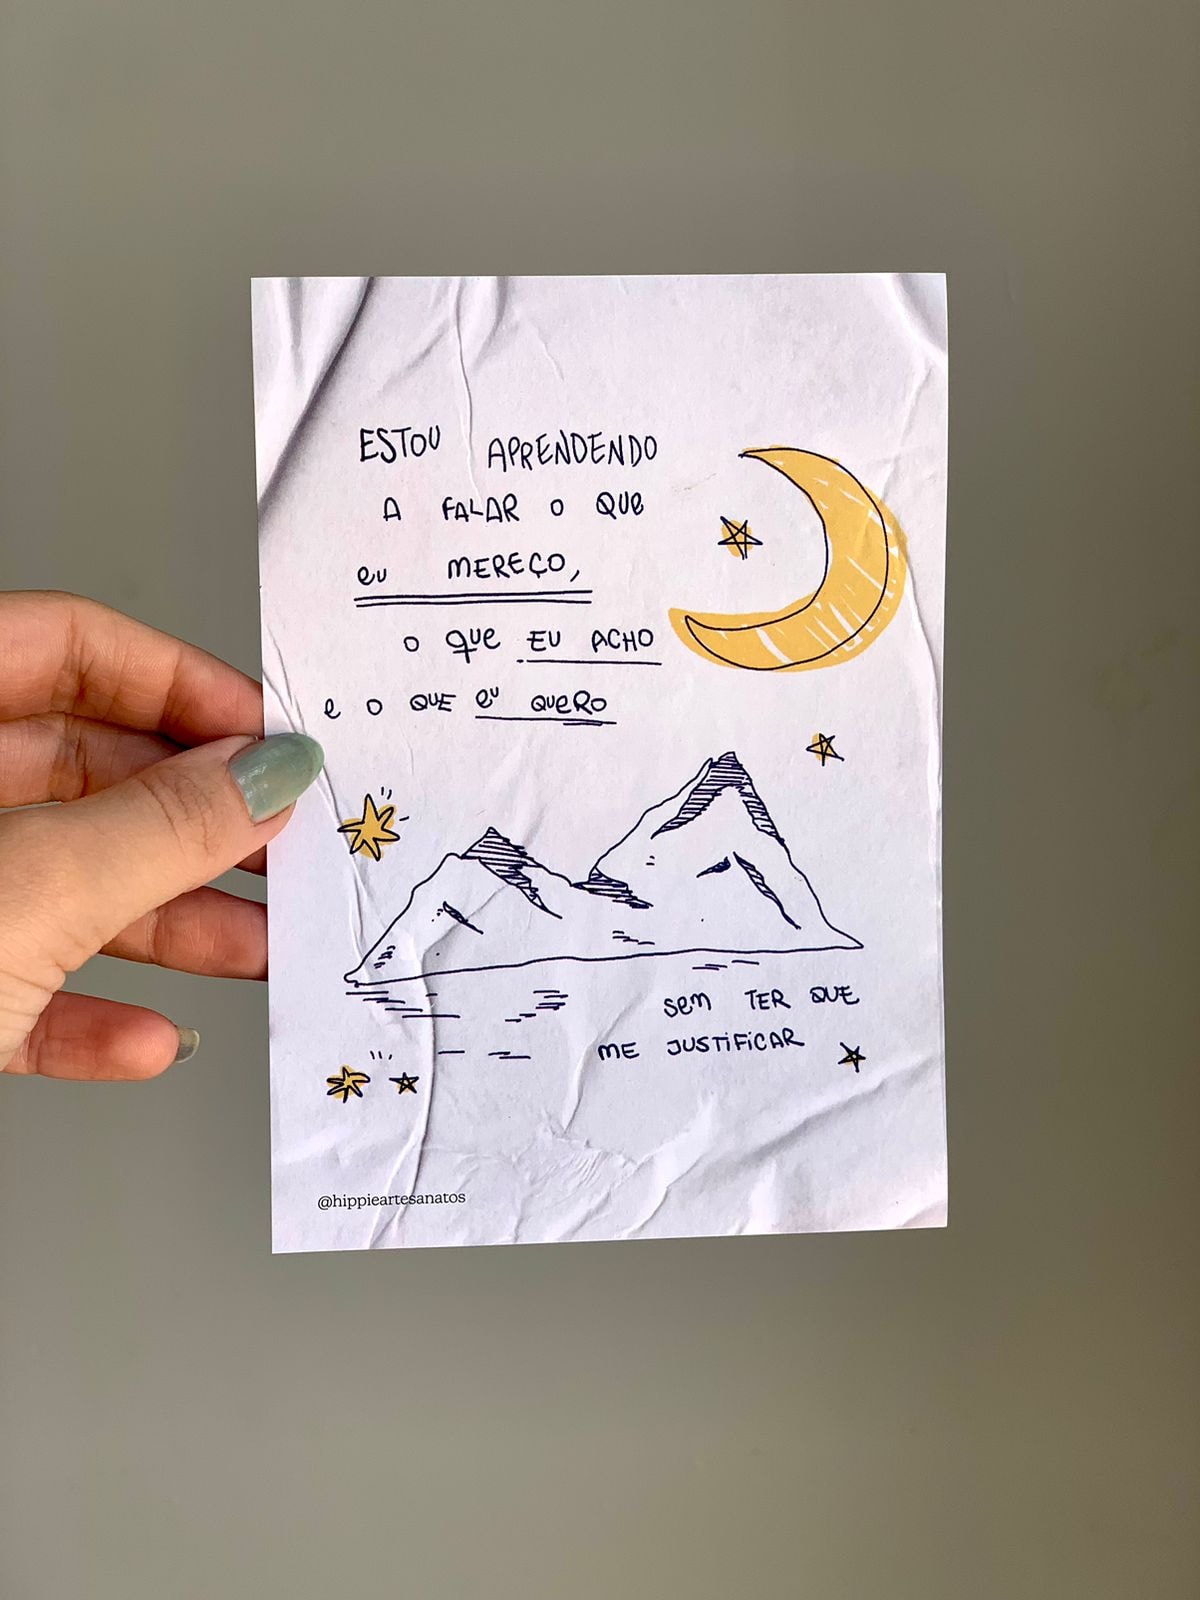 ESTOU APRENDENDO
A FALAR O QUE
eu MEREÇO,
O que EU ACHO
e O QUE eu QUeRO
sem TER QUE
ME JUSTiFiCAR
@hippieartesanatos